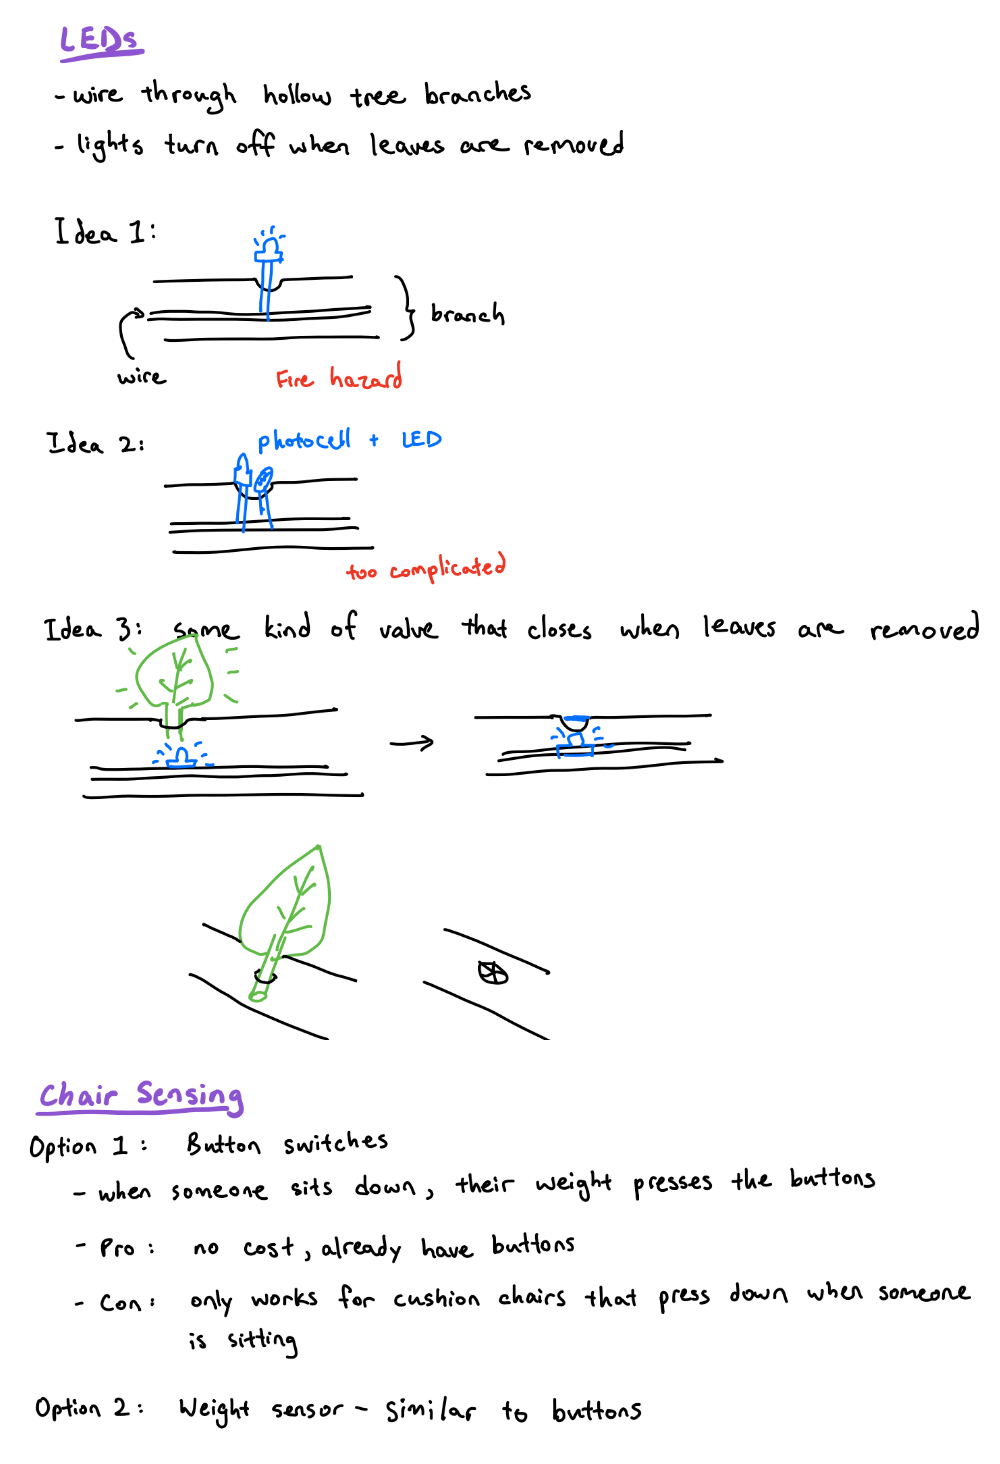 LEDs
- wire through hollow tree branches
- lights turn off when leaves are removed
Idea 1:
branch
wire
Fire hazard
Idea 2:
photocell + LED
too complicated
Idea 3: some kind of value that closes when leaves are removed
Chair Sensing
Option 1: Button switches
- when someone sits down, their weight presses the buttons
- Pro: no cost, already have buttons
- Con: only works for cushion chairs that press down when someone
is sitting
Option 2: Weight sensor - similar to buttons